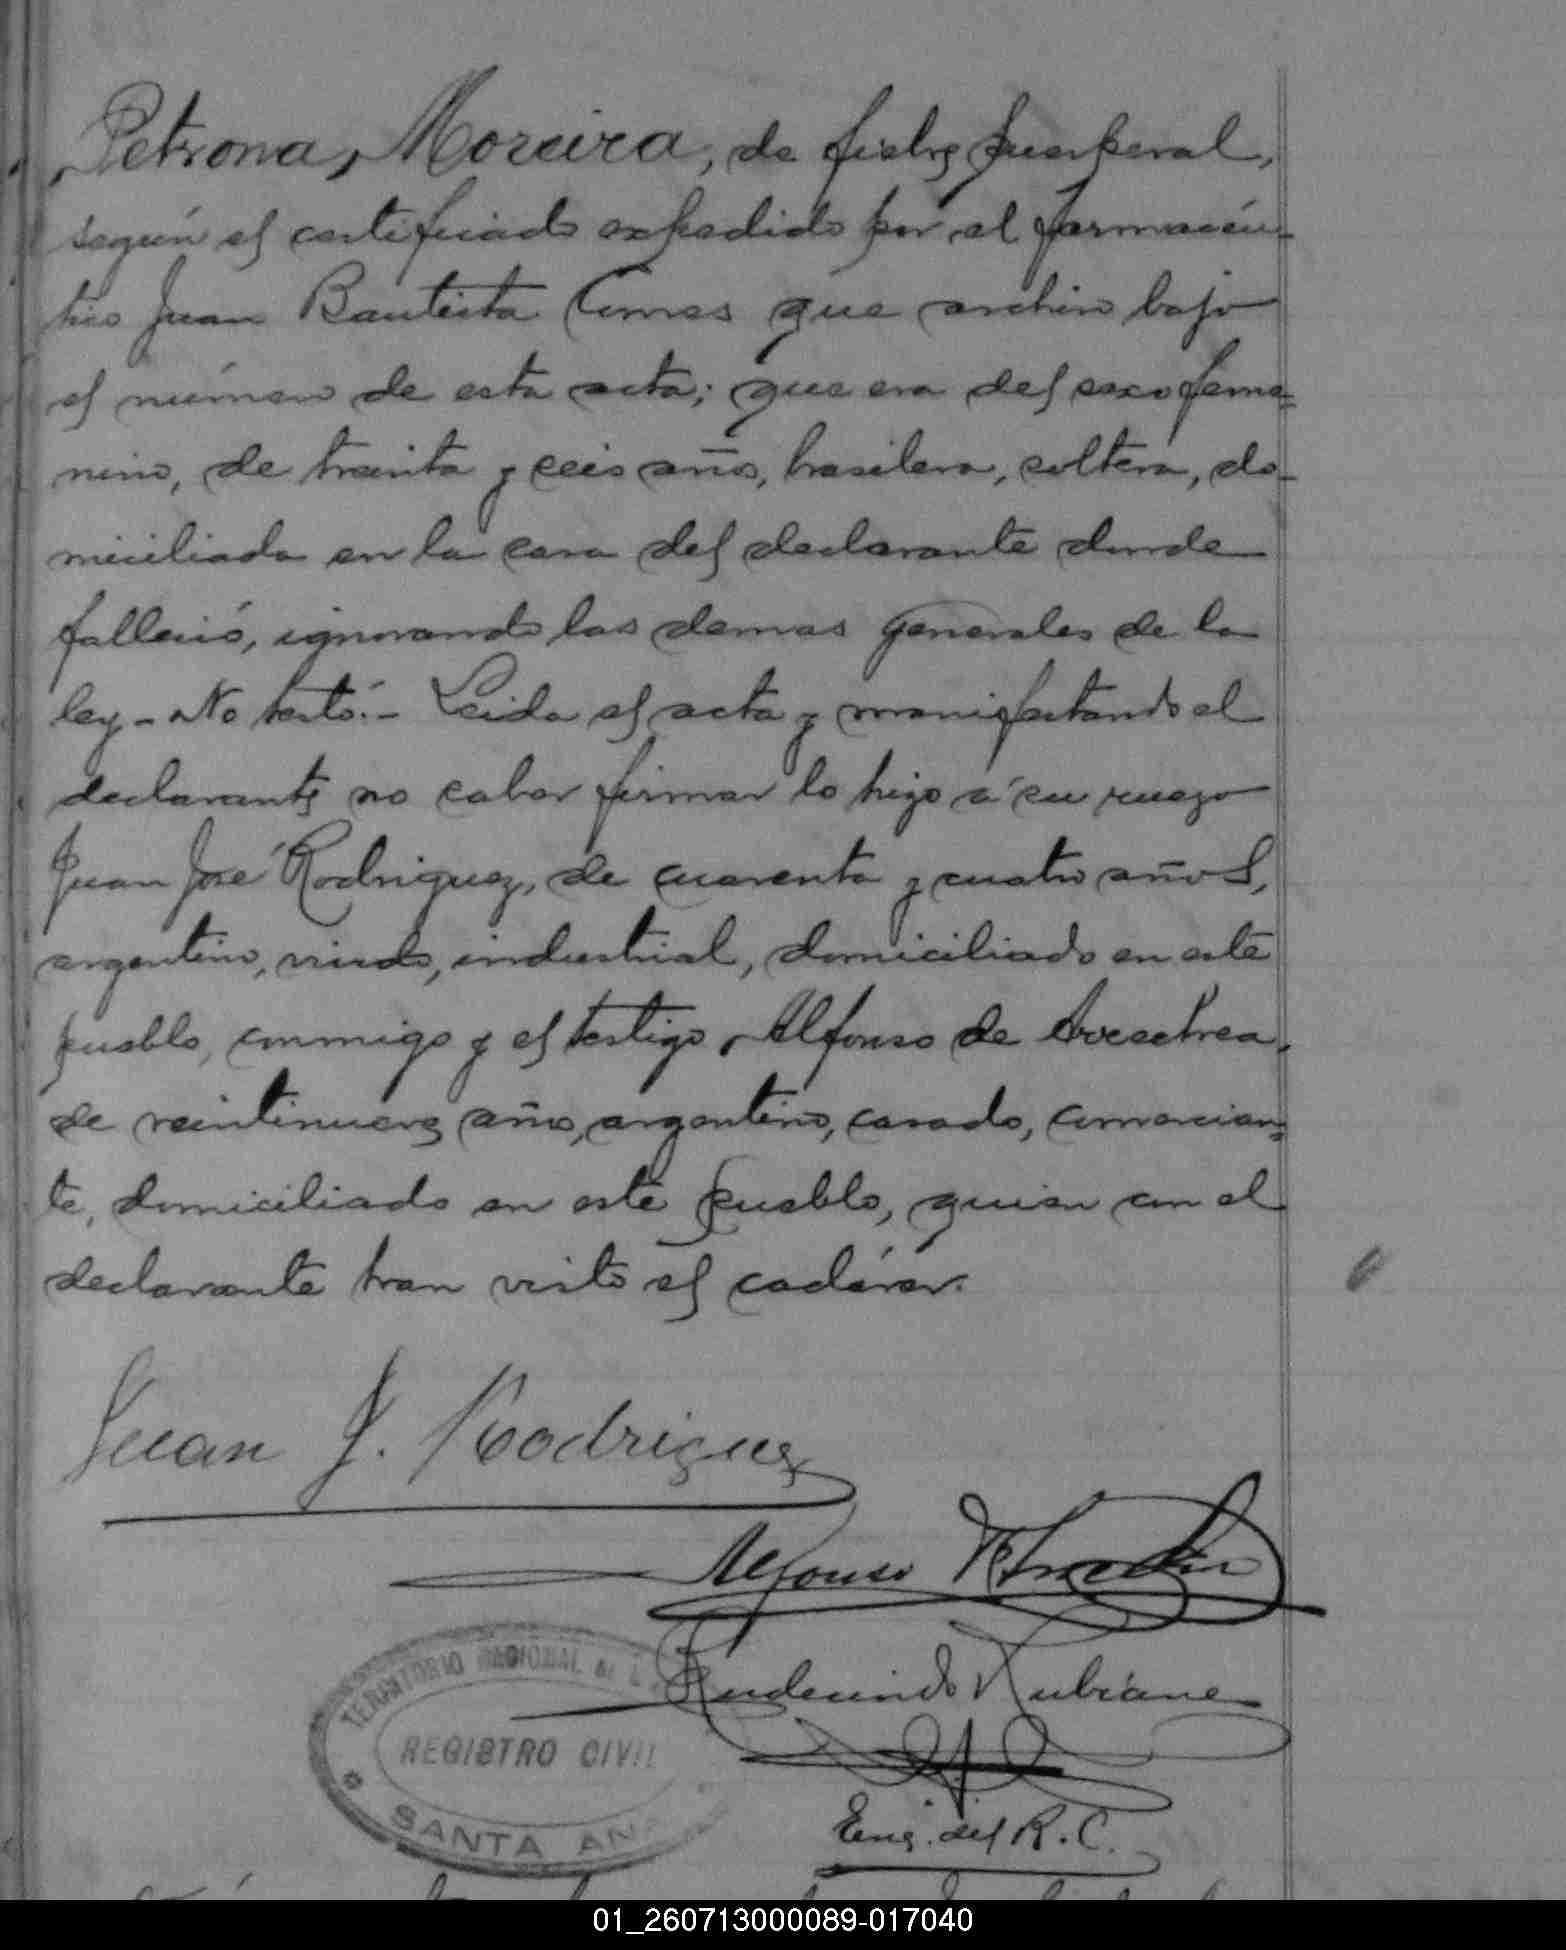 Petrona Moreira, de fiebre puerperal,
según el certificado expedido por el farmacéu-
tico Juan Bautista Comes que archivo bajo
el número de esta acta; que era del sexo feme=
nino, de treinta y seis años, brasilera, soltera, do-
miciliada en la casa del declarante donde
falleció, ignorando las demas generales de la
ley - No testó. - Leida el acta y manifestando el
declarante no saber firmar lo hizo á su ruego
Juan José Rodriguez, de cuarenta y cuatro años,
argentino, viudo, industrial, domiciliado en este
pueblo, conmigo y el testigo Alfonso de Arrechea,
de veintinueve años, argentino, casado, comercian=
te, domiciliado en este pueblo, quien con el
declarante han visto el cadáver.
Juan J. Rodriguez
Alfonso
Rudecindo
TERRITORIO NACIONAL DE
REGISTRO CIVIL
SANTA ANA
Enc. del R. C.
01_260713000089-017040